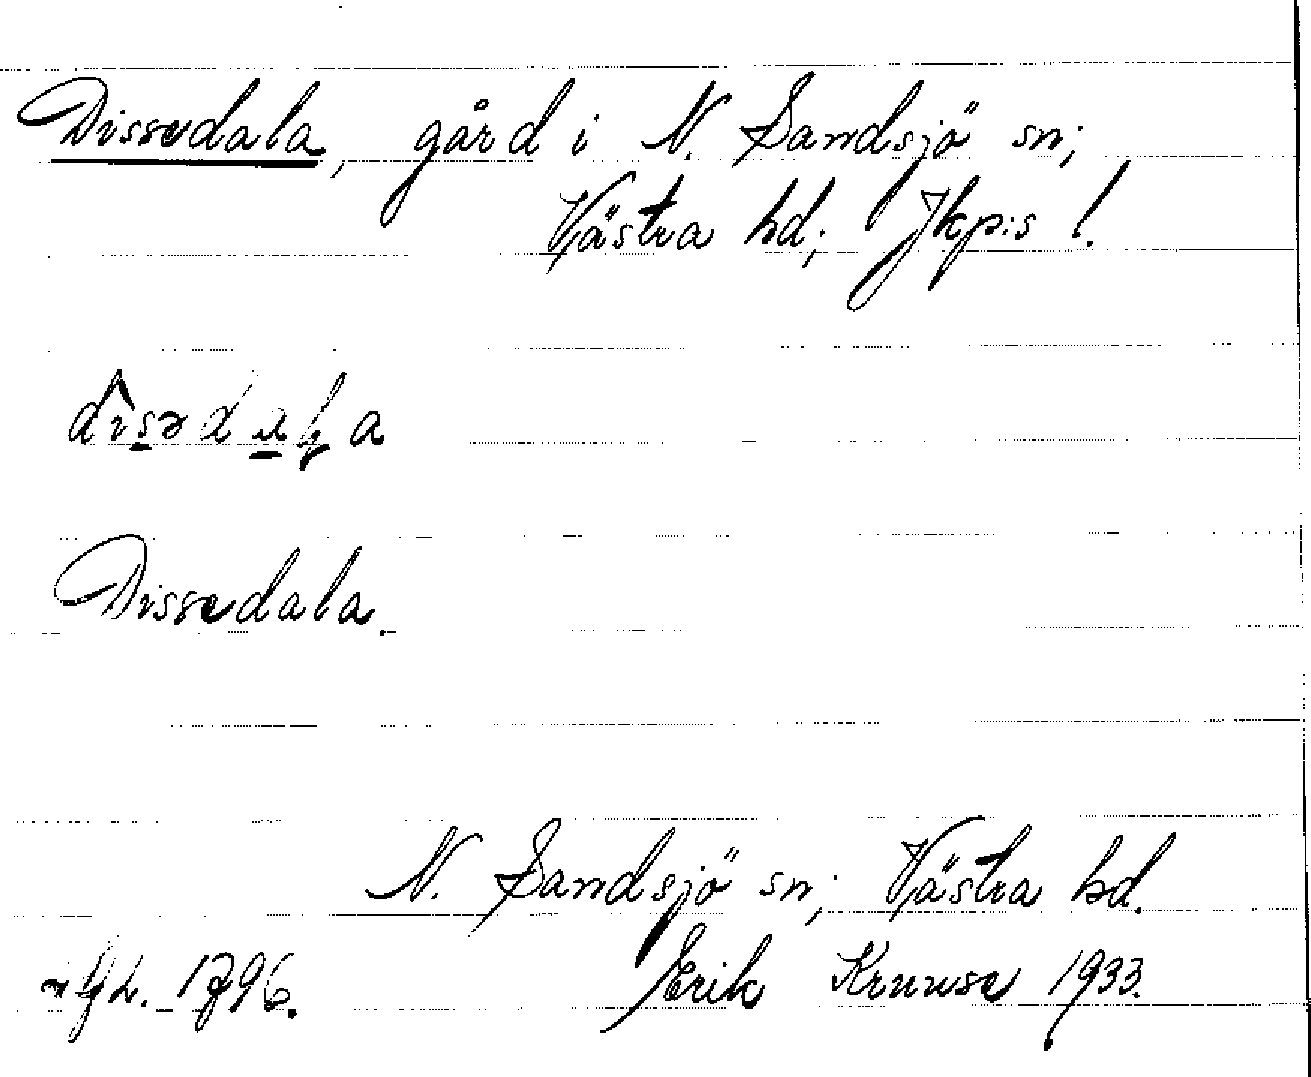 Dissedala, gård i N. Sandsjö sn;
Västra hd; Jkp:s l.
Dissedala.
N. Sandsjö sn; Västra hd.
Erik Kruuse 1933.